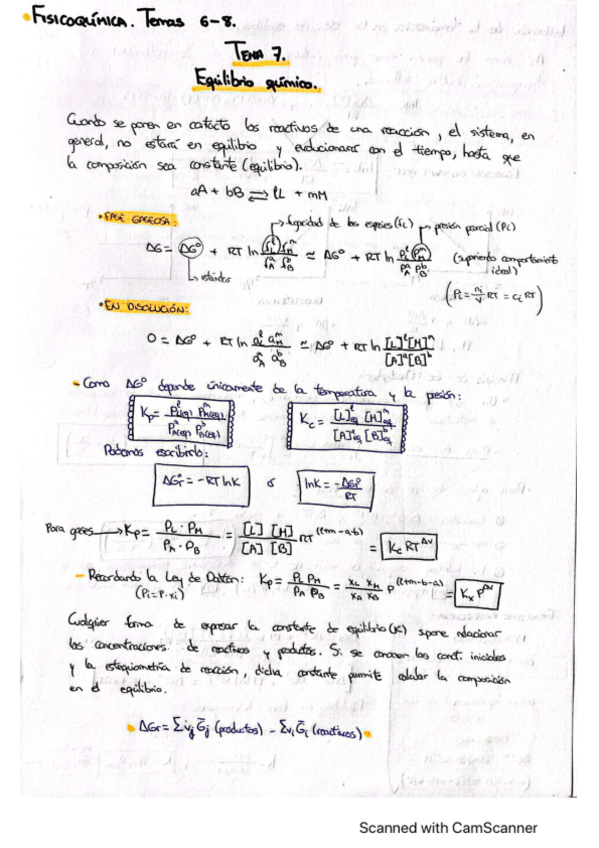 • FISICOQUÍMICA. Temas 6-8.
TEMA 7.
Equilibrio químico.
Cuando se ponen en contacto los reactivos de una reacción, el sistema, en
general, no estará en equilibrio y evolucionará con el tiempo, hasta que
la composición sea constante (equilibrio).
aA + bB ⇌ lL + mM
• FASE GASEOSA:
→ fugacidad de las especies (fi) → presión parcial (Pi)
ΔG = ΔG° + RT ln (f_L^l f_M^m / f_A^a f_B^b) ≃ ΔG° + RT ln (P_L^l P_M^m / P_A^a P_B^b) (suponiendo comportamiento
ideal)
↳ estándar
(Pi = ni/V RT = ci RT)
• EN DISOLUCIÓN:
0 = ΔG° + RT ln (a_L^l a_M^m / a_A^a a_B^b) ≃ ΔG° + RT ln ([L]^l [M]^m / [A]^a [B]^b)
- Como ΔG° depende únicamente de la temperatura y la presión:
Kp = P_L(eq)^l P_M(eq)^m / P_A(eq)^a P_B(eq)^b
Kc = [L]^l_eq [M]^m_eq / [A]^a_eq [B]^b_eq
Podemos escribirlo:
ΔGr° = -RT lnK ó lnK = -ΔGr° / RT
Para gases → Kp = P_L · P_M / P_A · P_B = [L] [M] / [A] [B] RT^(l+m-a-b) = Kc RT^Δν
- Recordando la Ley de Dalton: Kp = P_L P_M / P_A P_B = x_L x_M / x_A x_B P^(l+m-b-a) = Kx P^Δν
(Pi = P · xi)
Cualquier forma de expresar la constante de equilibrio (K) supone relacionar
las concentraciones de reactivos y productos. Si se conocen las cont. iniciales
y la estequiometría de reacción, dicha constante permite calcular la composición
en el equilibrio.
• ΔGr = Σνj Ḡj (productos) - Σνi Ḡi (reactivos) •
Scanned with CamScanner